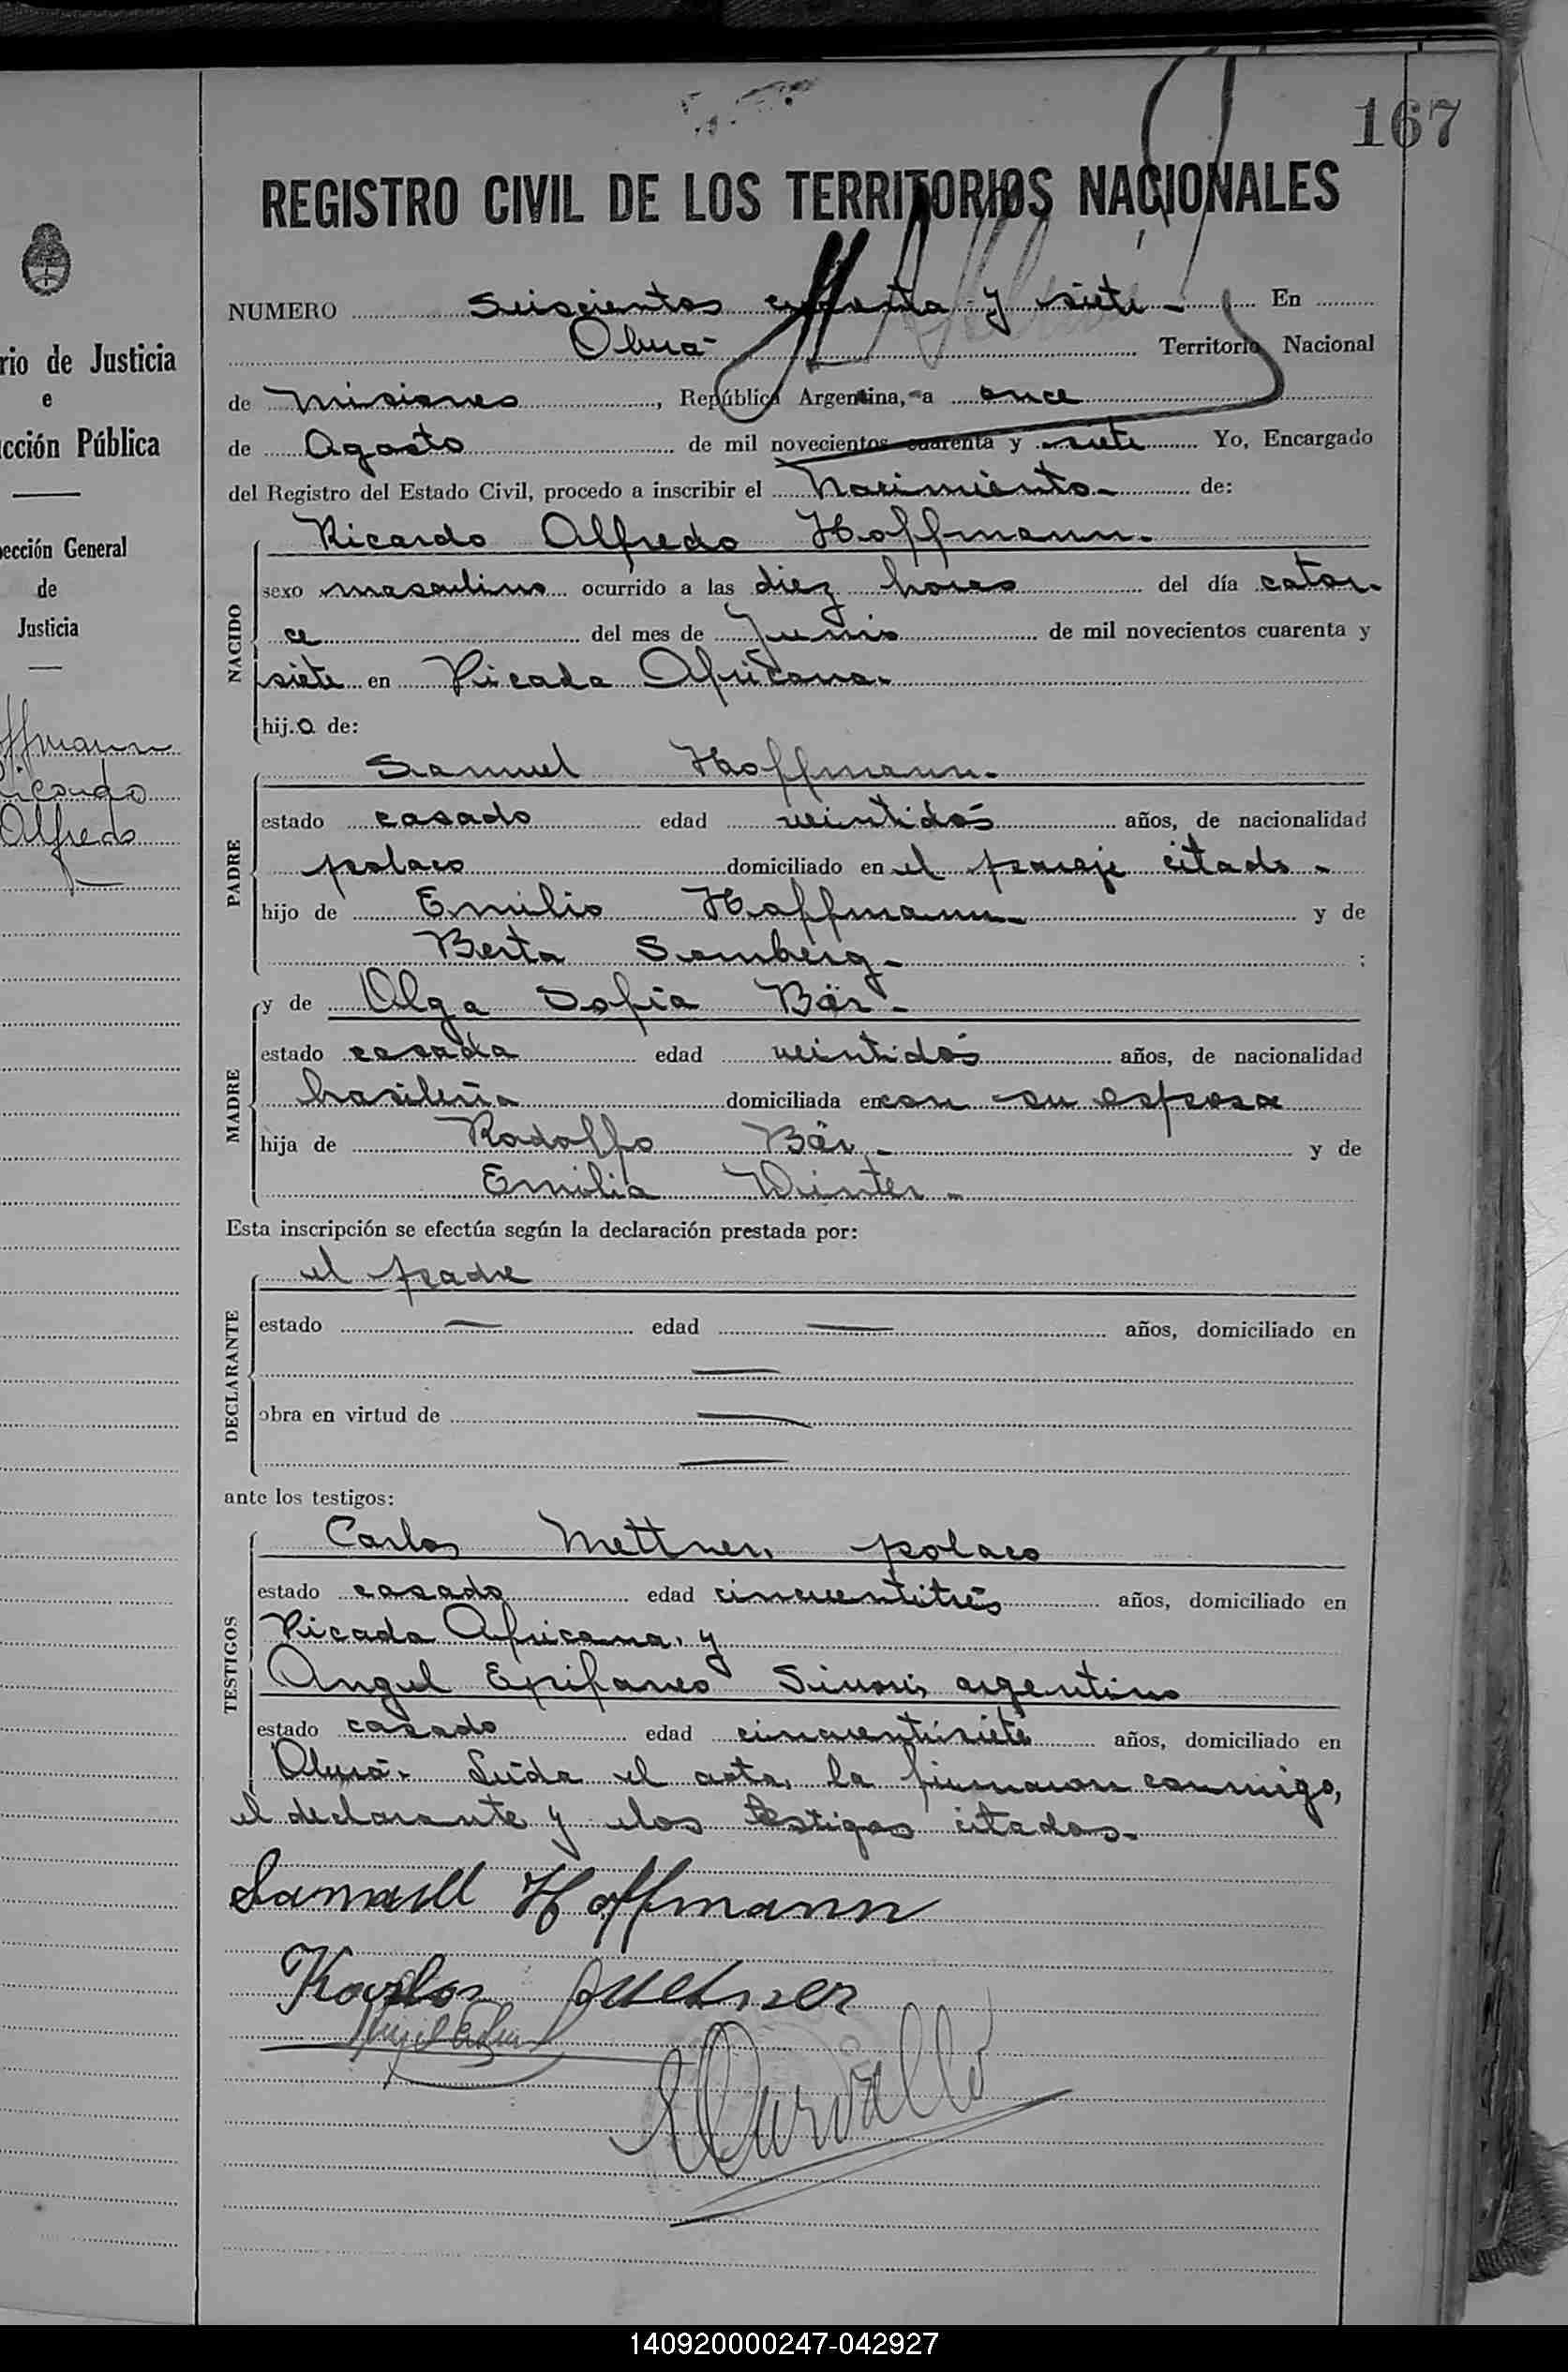 167
REGISTRO CIVIL DE LOS TERRITORIOS NACIONALES
rio de Justicia
e
cción Pública
ección General
de
Justicia
offmann
Ricardo
Alfredo
NUMERO Seiscientos y siete - En
Oberá - Territorio Nacional
de Misiones, República Argentina, a once
de Agosto de mil novecientos cuarenta y siete Yo, Encargado
del Registro del Estado Civil, procedo a inscribir el Nacimiento - de:
NACIDO
Ricardo Alfredo Hoffmann.
sexo masculino ocurrido a las diez horas del día cator-
ce del mes de Junio de mil novecientos cuarenta y
siete en Picada Africana.
hijo de:
PADRE
Samuel Hoffmann.
estado casado edad veintidós años, de nacionalidad
polaco domiciliado en el paraje citado -
hijo de Emilio Hoffmann - y de
Berta - ;
MADRE
y de Olga Sofia Bär -
estado casada edad veintidós años, de nacionalidad
brasileña domiciliada en con su esposo
hija de Rodolfo Bär - y de
Emilia Winter -
Esta inscripción se efectúa según la declaración prestada por:
DECLARANTE
el padre
estado — edad — años, domiciliado en
—
obra en virtud de —
—
ante los testigos:
TESTIGOS
Carlos Mettner, polaco
estado casado edad cincuentitrés años, domiciliado en
Picada Africana, y
Angel Epifaneo argentino
estado casado edad cincuentisiete años, domiciliado en
Oberá. Leída el acta, la firmaron conmigo,
el declarante y los testigos citados.
Samuell Hoffmann
Karlos
140920000247-042927